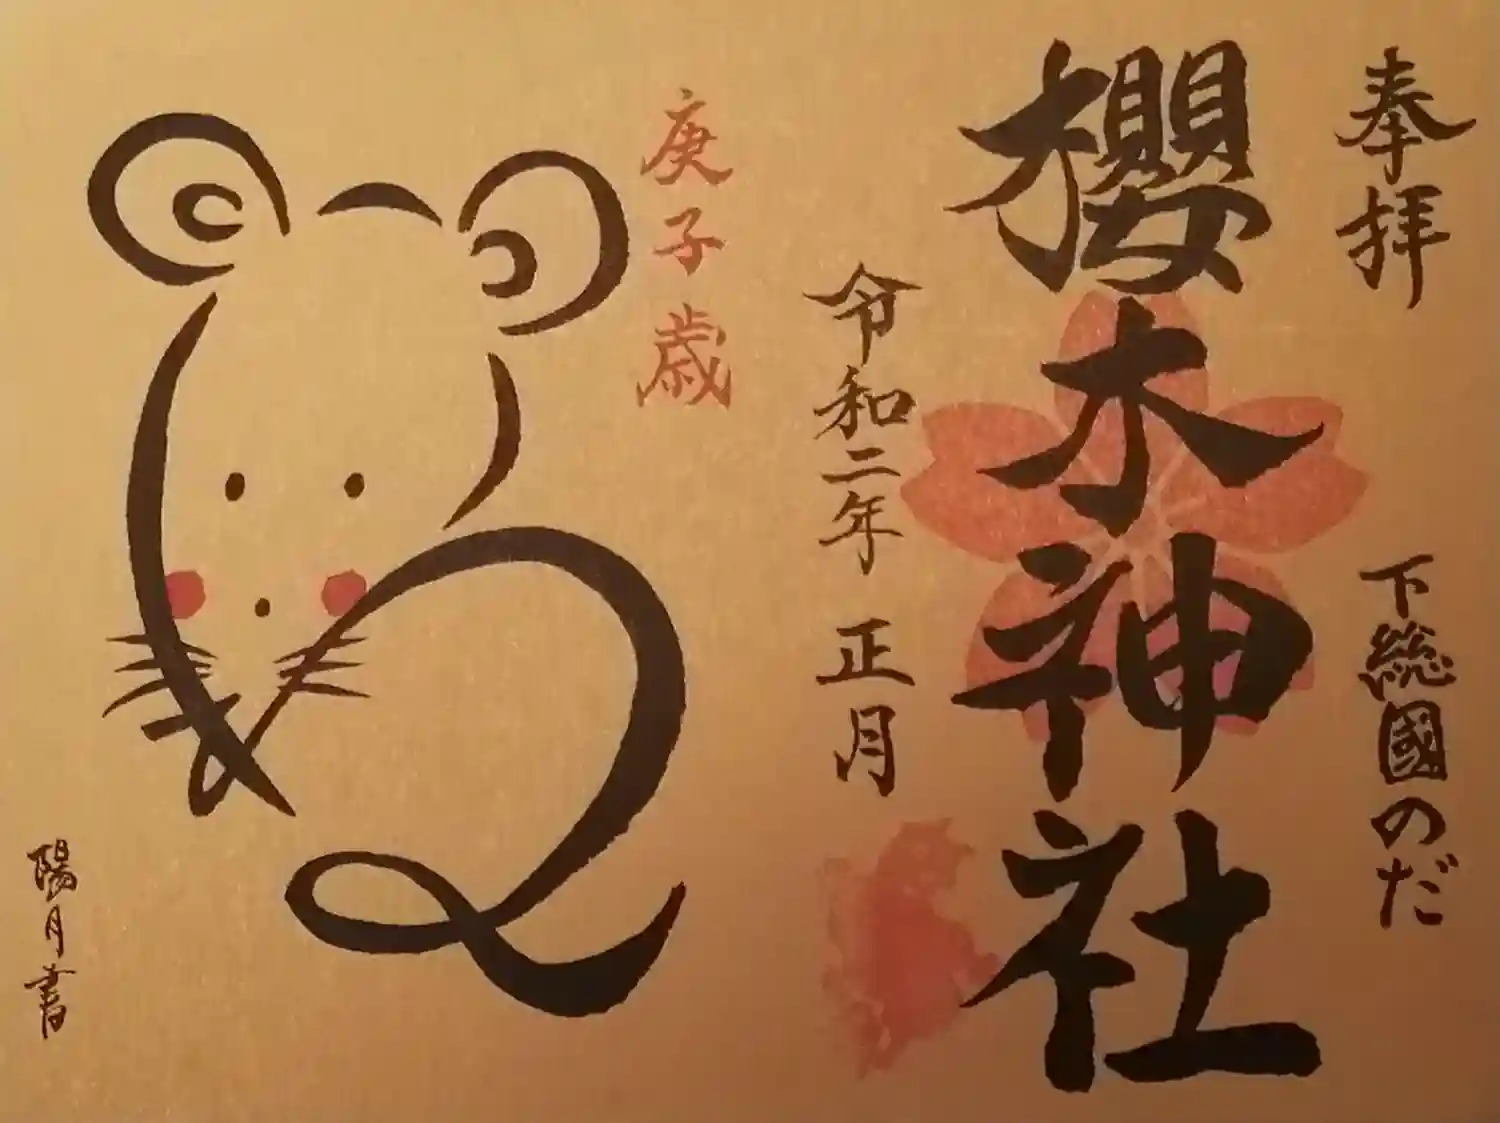 奉拝
下総國のだ
櫻木神社
令和二年正月
庚子歳
陽月書